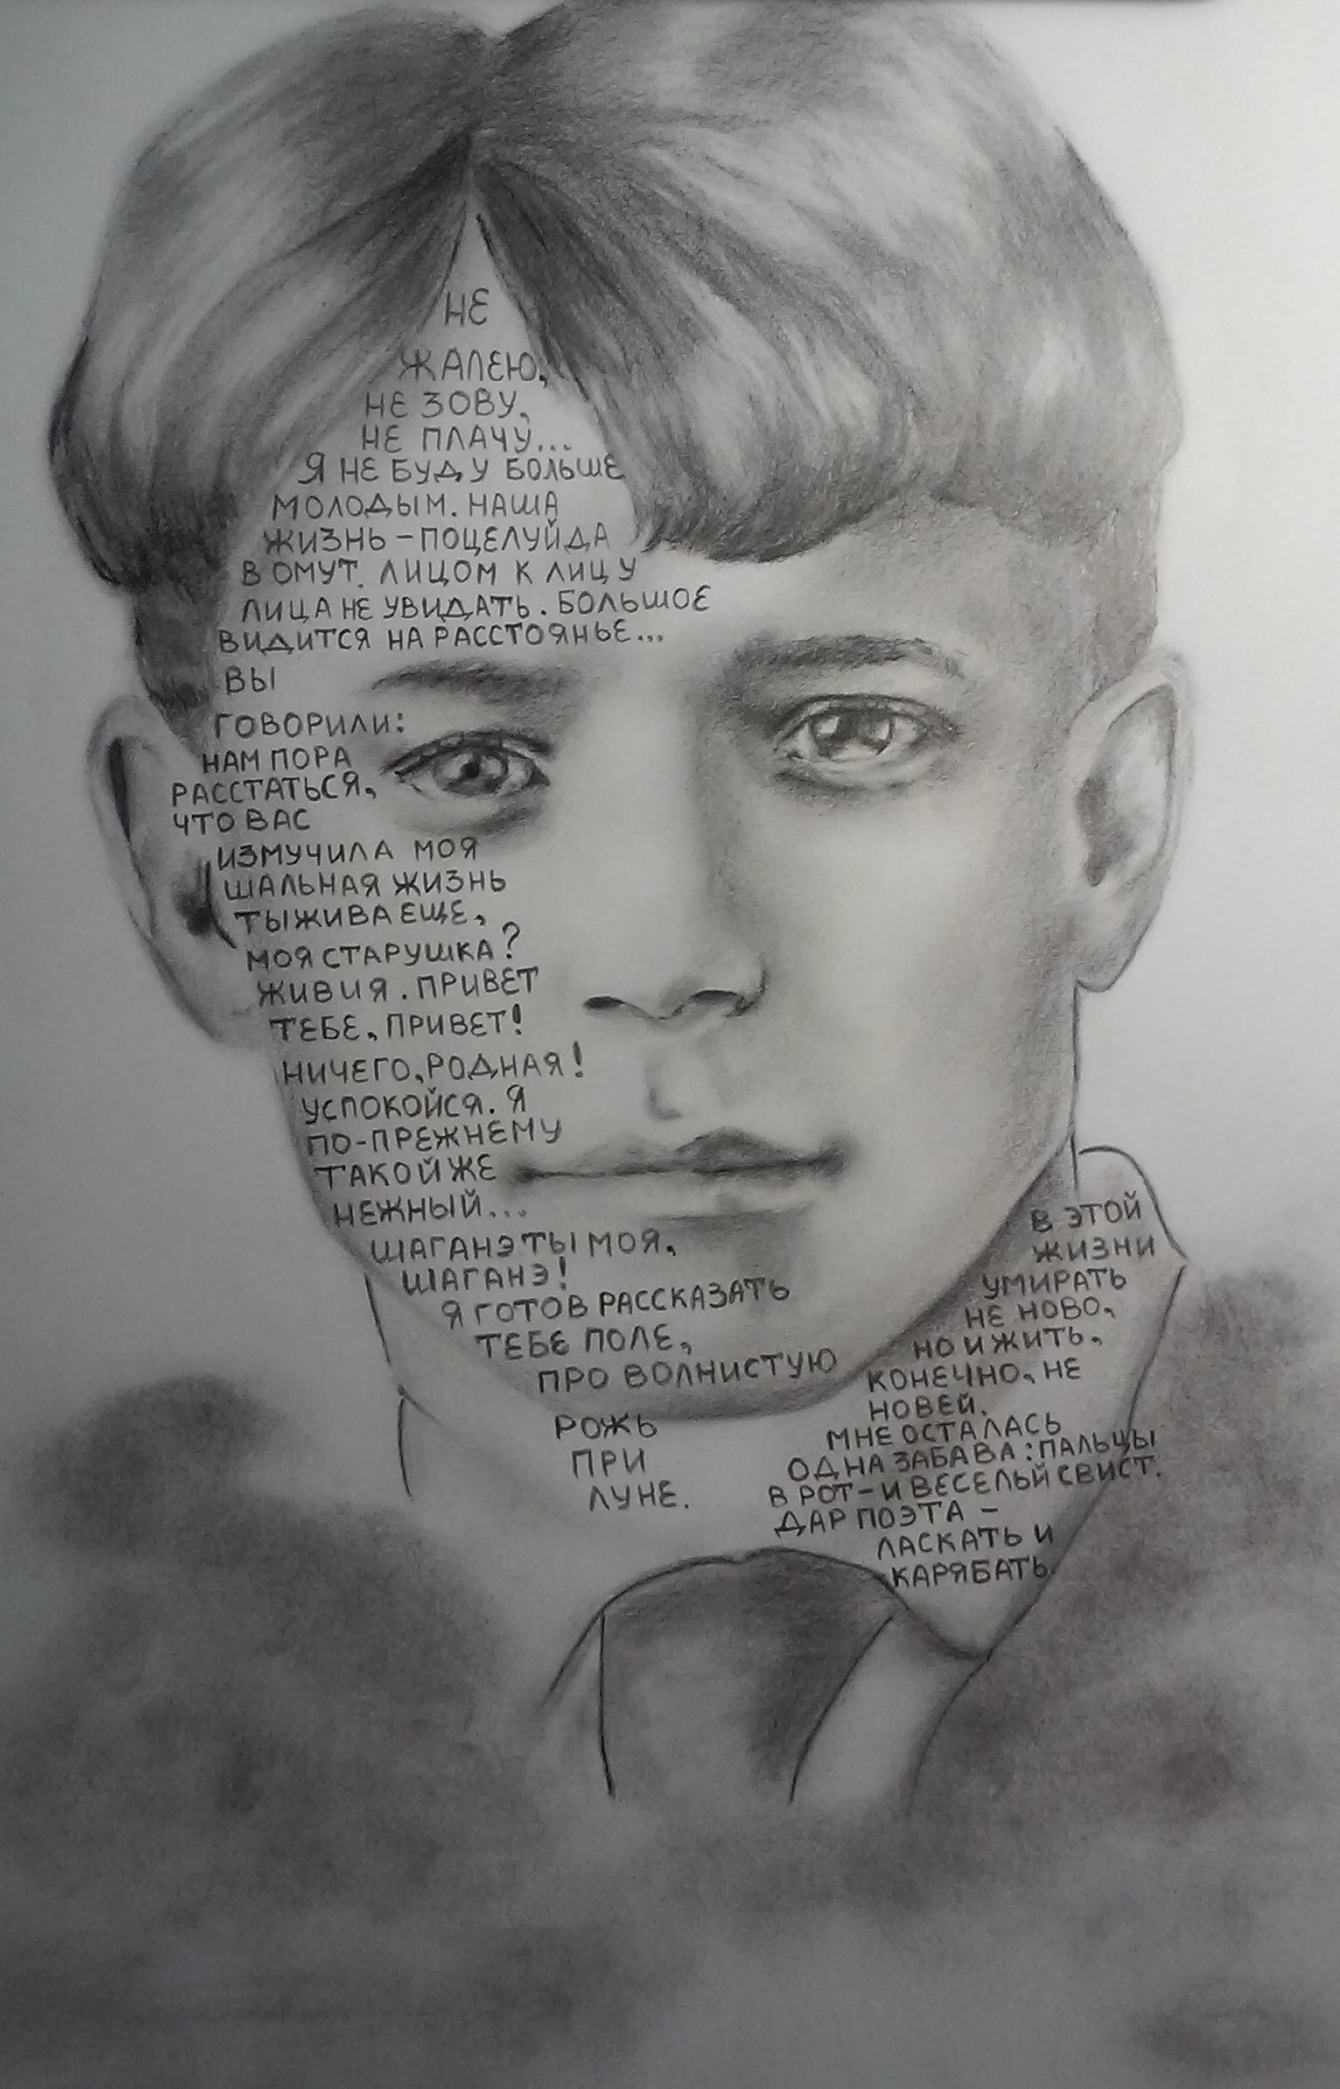 НЕ
ЖАЛЕЮ,
НЕ ЗОВУ,
НЕ ПЛАЧУ...
Я НЕ БУДУ БОЛЬШЕ
МОЛОДЫМ. НАША
ЖИЗНЬ - ПОЦЕЛУЙ ДА
В ОМУТ. ЛИЦОМ К ЛИЦУ
ЛИЦА НЕ УВИДАТЬ. БОЛЬШОЕ
ВИДИТСЯ НА РАССТОЯНЬЕ...
ВЫ
ГОВОРИЛИ:
НАМ ПОРА
РАССТАТЬСЯ,
ЧТО ВАС
ИЗМУЧИЛА МОЯ
ШАЛЬНАЯ ЖИЗНЬ
ТЫ ЖИВА ЕЩЕ,
МОЯ СТАРУШКА?
ЖИВ И Я. ПРИВЕТ
ТЕБЕ, ПРИВЕТ!
НИЧЕГО, РОДНАЯ!
УСПОКОЙСЯ. Я
ПО-ПРЕЖНЕМУ
ТАКОЙ ЖЕ
НЕЖНЫЙ...
ШАГАНЭ ТЫ МОЯ,
ШАГАНЭ!
Я ГОТОВ РАССКАЗАТЬ
ТЕБЕ ПОЛЕ,
ПРО ВОЛНИСТУЮ
РОЖЬ
ПРИ
ЛУНЕ.
В ЭТОЙ
ЖИЗНИ
УМИРАТЬ
НЕ НОВО,
НО И ЖИТЬ,
КОНЕЧНО, НЕ
НОВЕЙ.
МНЕ ОСТАЛАСЬ
ОДНА ЗАБАВА: ПАЛЬЦЫ
В РОТ - И ВЕСЕЛЫЙ СВИСТ.
ДАР ПОЭТА -
ЛАСКАТЬ И
КАРЯБАТЬ.